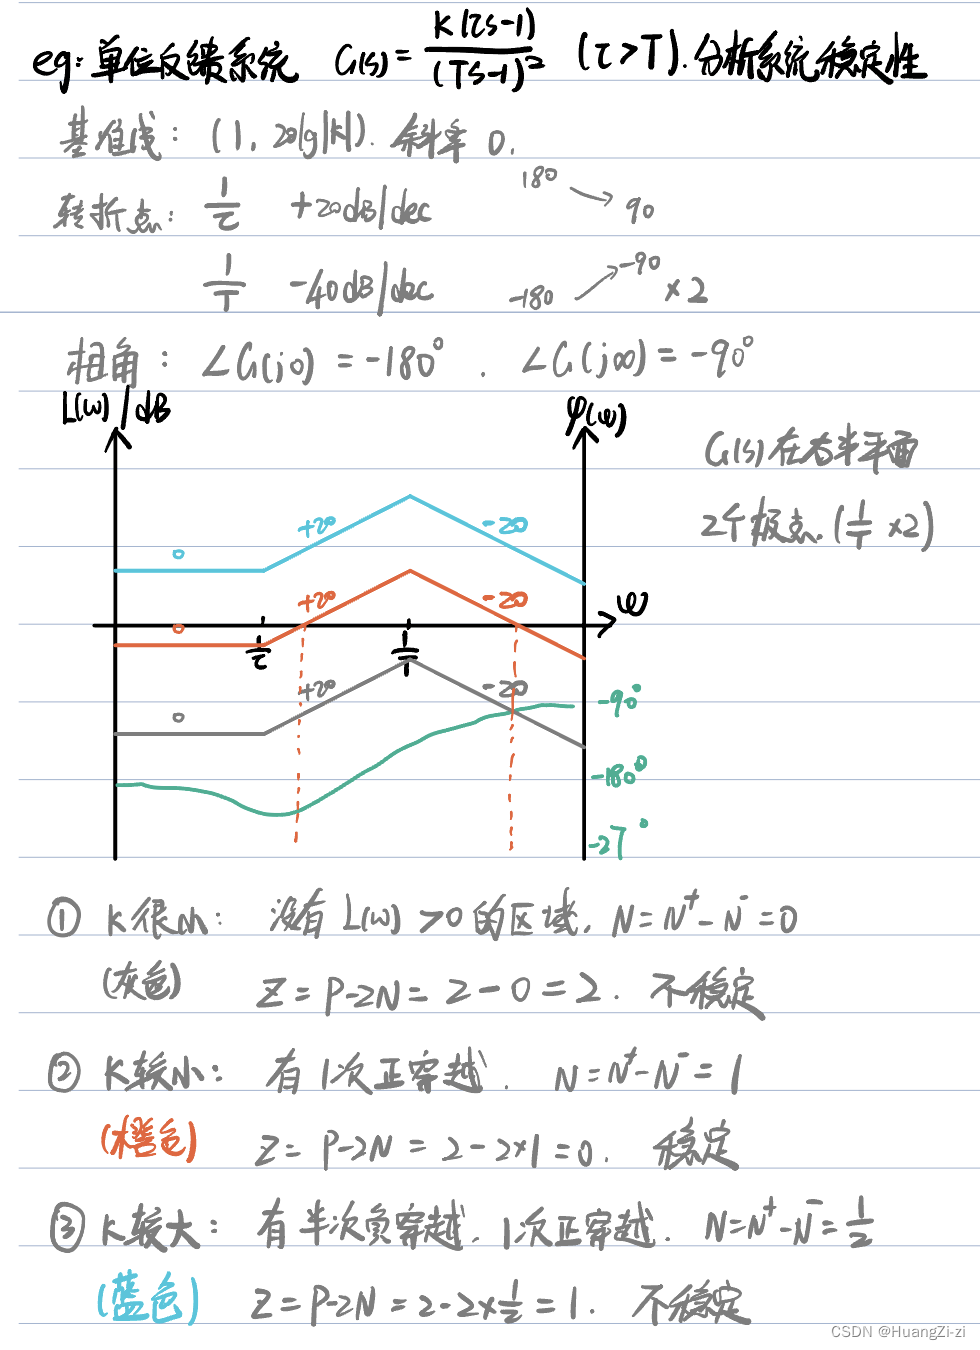 eg: 单位反馈系统 G(s) = K(τs-1)/(Ts-1)² (τ>T). 分析系统稳定性
基准线: (1, 20lg|K|). 斜率 0.
转折点: 1/τ +20dB/dec 180 → 90
1/T -40dB/dec -180 → -90 ×2
相角: ∠G(j0) = -180°. ∠G(j∞) = -90°
L(ω)/dB φ(ω)
G(s)在右半平面
2个极点. (1/T ×2)
+20 -20
0
+20 -20 ω
0
1/τ 1/T
+20 -20
0
-90°
-180°
-27°
① K很小: 没有 L(ω) >0 的区域, N = N⁺-N⁻ = 0
(灰色) Z = P-2N = 2-0 = 2. 不稳定
② K较小: 有1次正穿越. N = N⁺-N⁻ = 1
(橙色) Z = P-2N = 2-2×1 = 0. 稳定
③ K较大: 有半次负穿越, 1次正穿越. N = N⁺-N⁻ = 1/2
(蓝色) Z = P-2N = 2-2×1/2 = 1. 不稳定
CSDN @HuangZi-zi